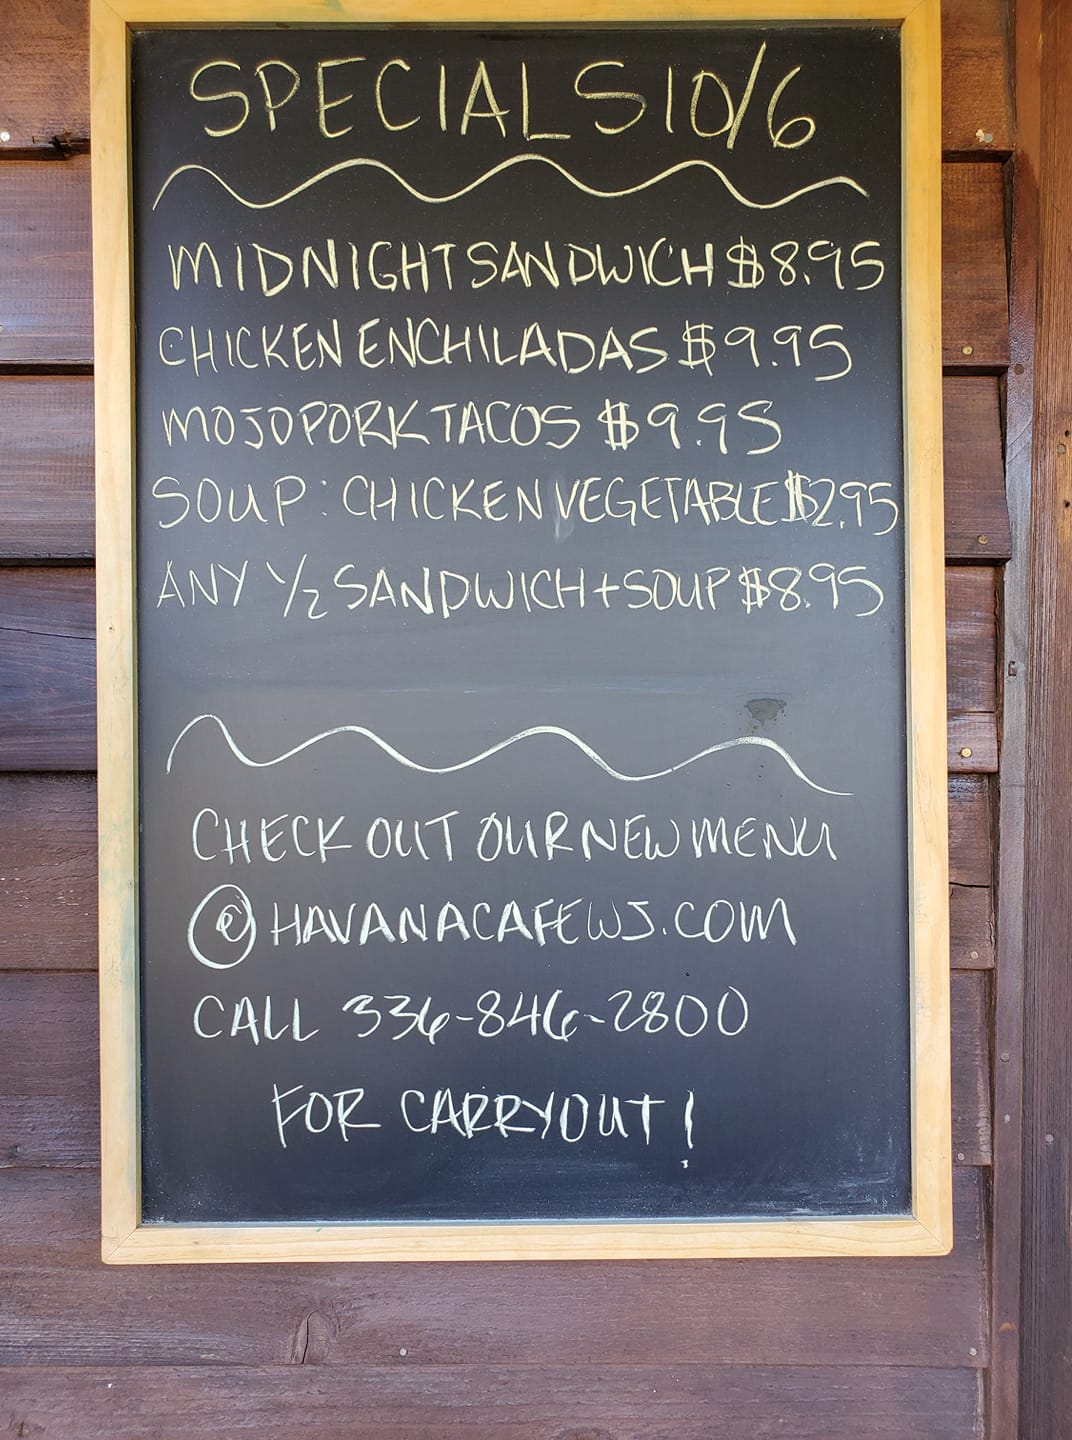 SPECIALS 10/6
MIDNIGHT SANDWICH $8.95
CHICKEN ENCHILADAS $9.95
MOJO PORK TACOS $9.95
SOUP: CHICKEN VEGETABLE $2.95
ANY 1/2 SANDWICH + SOUP $8.95
CHECK OUT OUR NEW MENU
@ HAVANACAFEWS.COM
CALL 336-846-2800
FOR CARRYOUT!